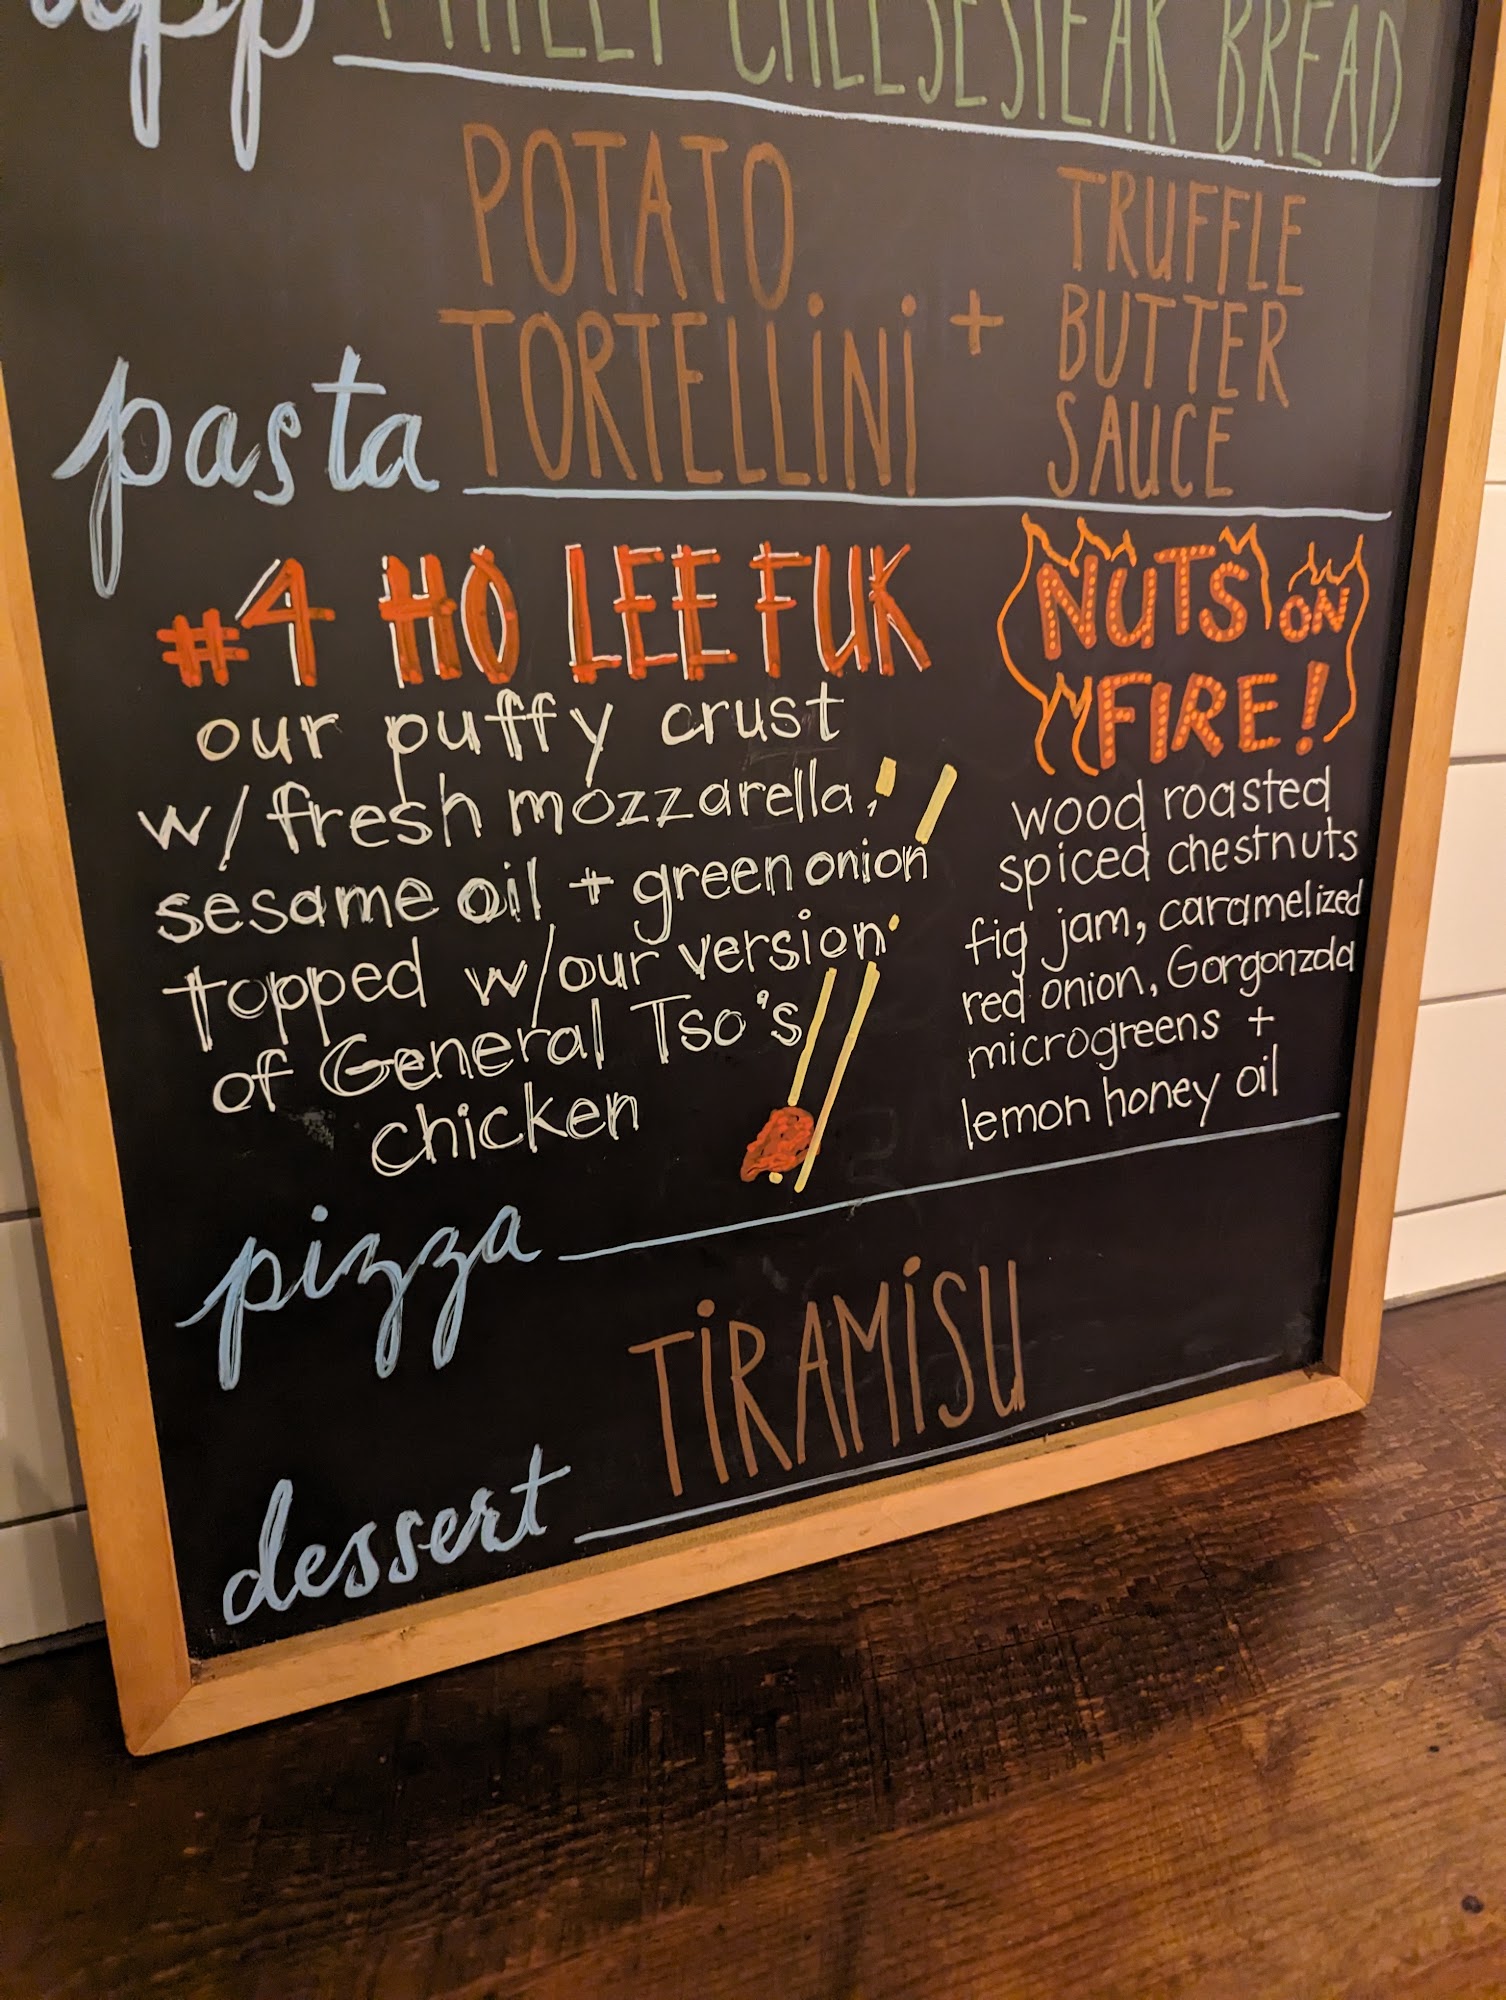 app PHILLY CHEESESTEAK BREAD
POTATO
TORTELLINI
+
TRUFFLE
BUTTER
SAUCE
pasta
#4 HO LEE FUK
our puffy crust
w/ fresh mozzarella,
sesame oil + green onion
topped w/our version
of General Tso's
chicken
NUTS ON
FIRE!
wood roasted
spiced chestnuts
fig jam, caramelized
red onion, Gorgonzola
microgreens +
lemon honey oil
pizza
TIRAMISU
dessert